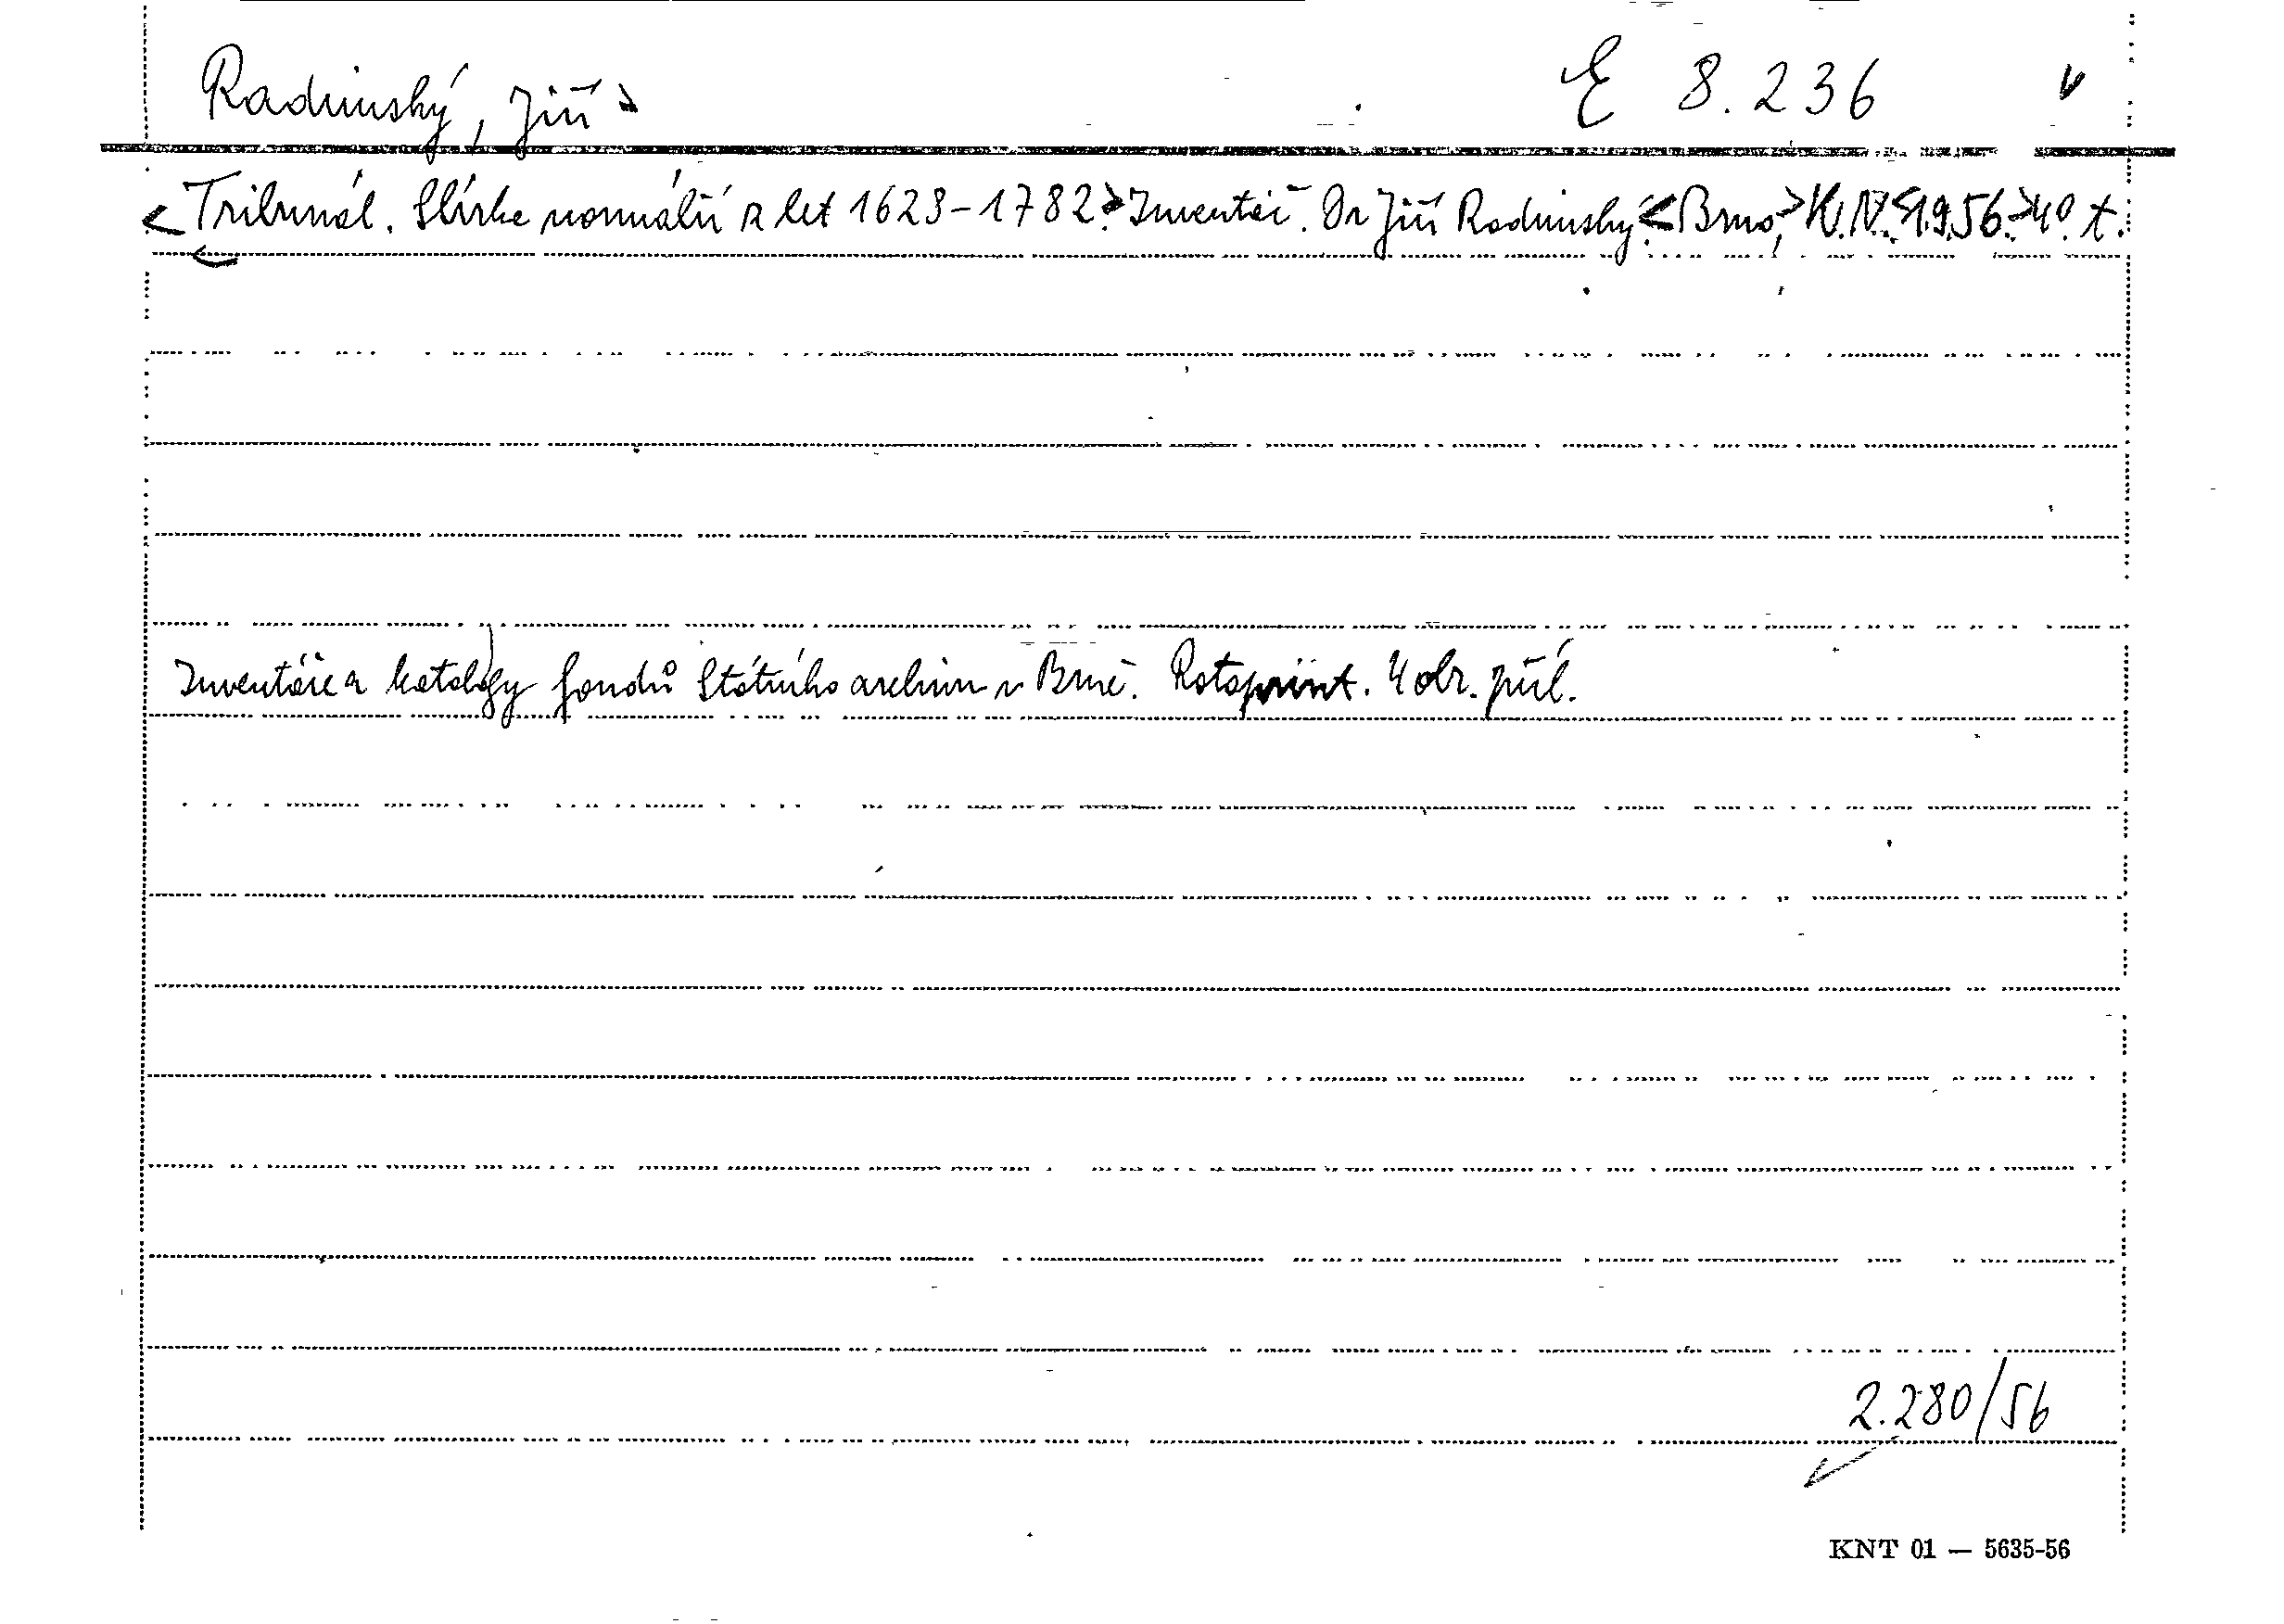 Radimský, Jiří > E 8.236 v
<Tribunál. Sbírka normálií z let 1623-1782.> Inventář. Dr Jiří Radimský. <Brno,> K.N.V. <1956.> 4°. t.
Inventáře a katalogy fondů Státního archivu v Brně. Rotaprint. 4 obr. příl.
2.280/56
KNT 01 — 5635-56